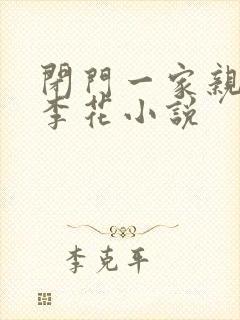 閉門一家親
李花小説
李克平